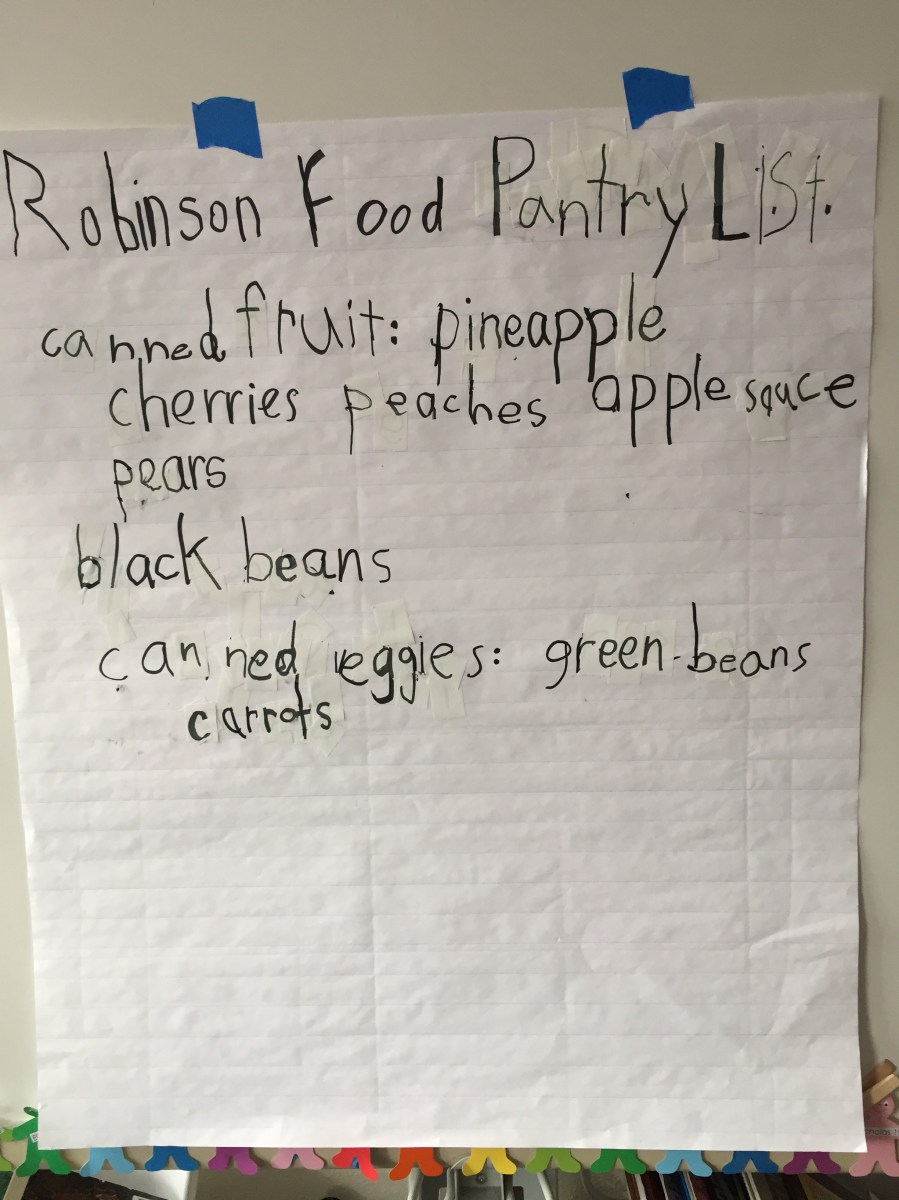 Robinson Food Pantry List.
canned fruit: pineapple
cherries peaches apple sauce
pears
black beans
canned veggies: green-beans
carrots